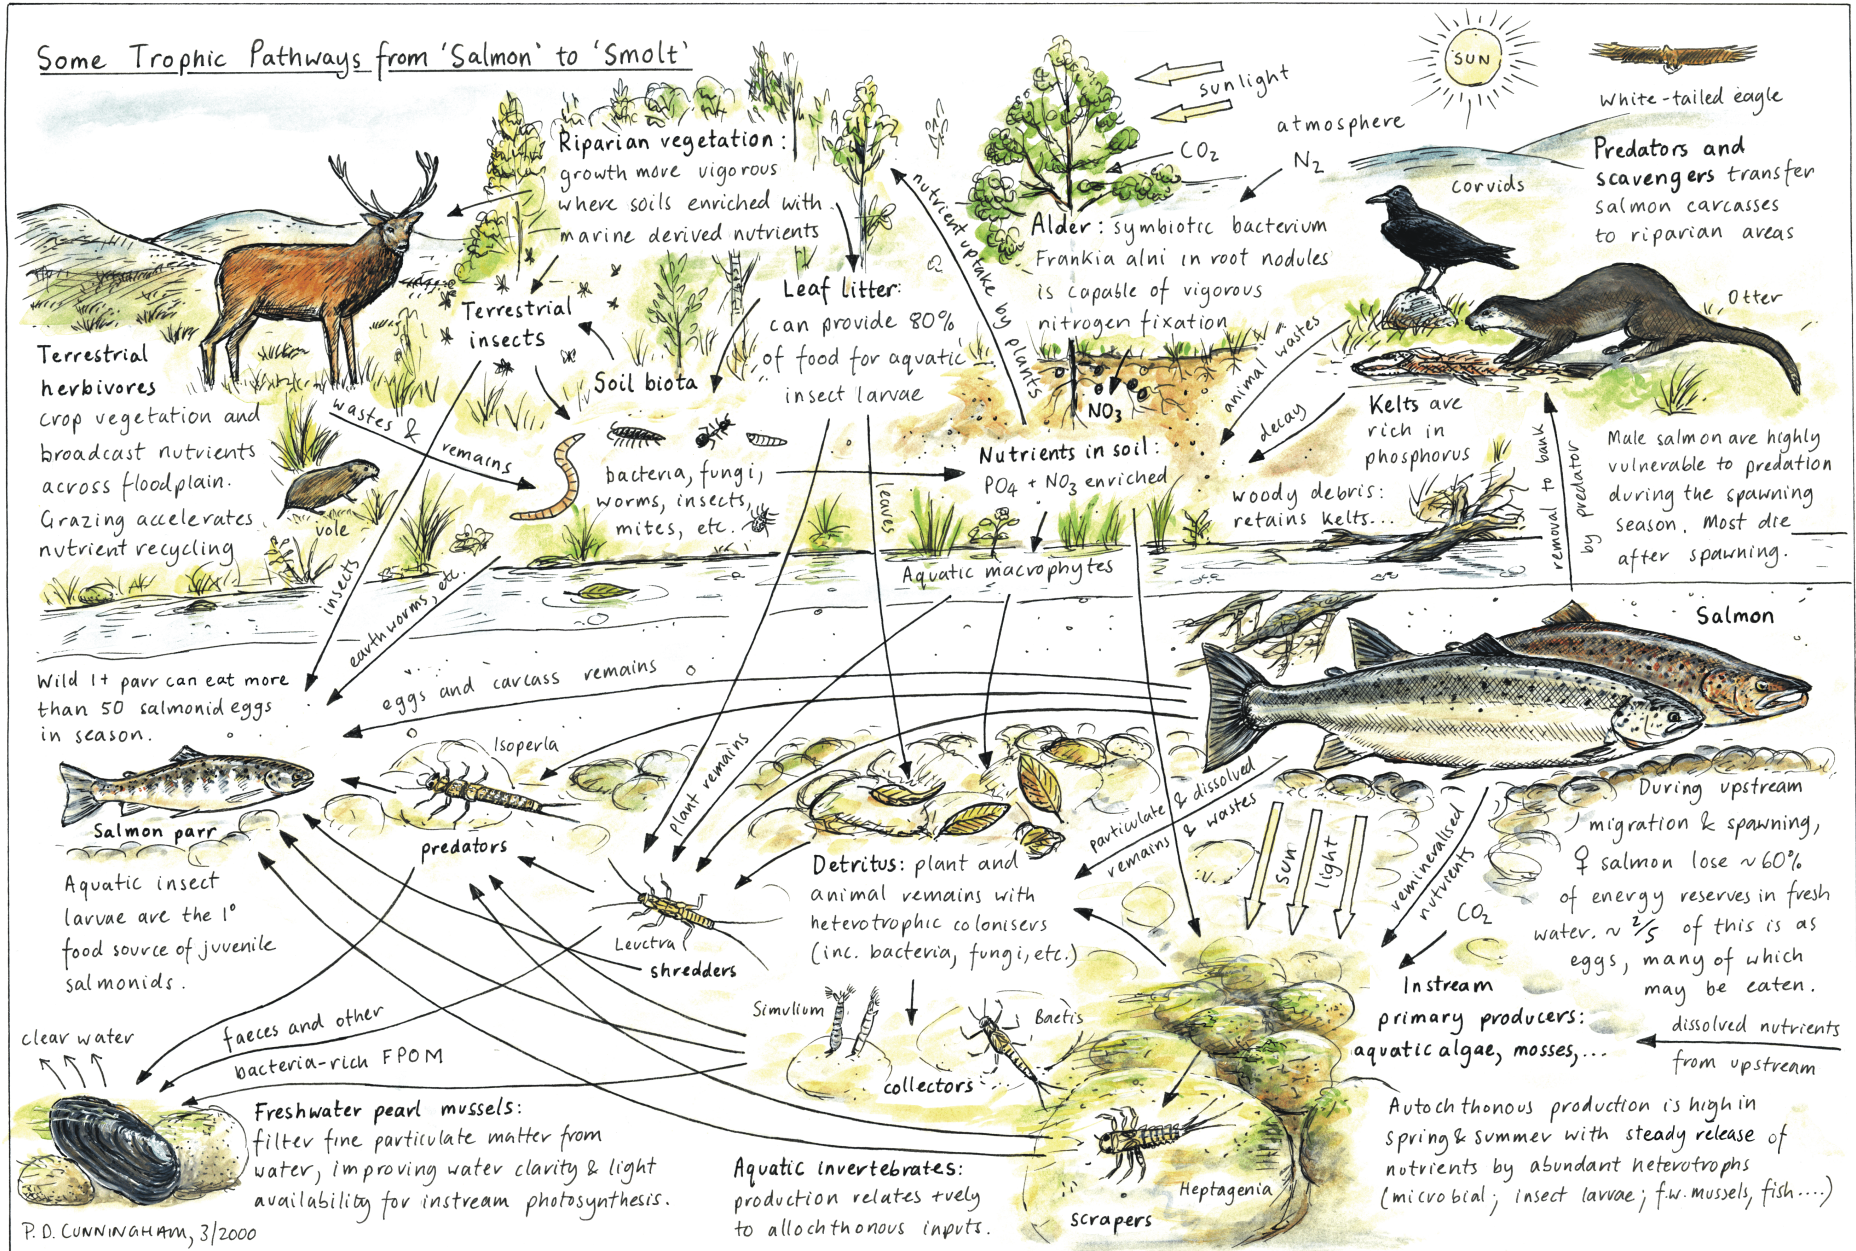 Some Trophic Pathways from 'Salmon' to 'Smolt'
SUN
sunlight
White-tailed eagle
atmosphere
CO₂
N₂
Riparian vegetation:
growth more vigorous
where soils enriched with
marine derived nutrients
nutrient uptake by plants
Alder: symbiotic bacterium
Frankia alni in root nodules
is capable of vigorous
nitrogen fixation
NO₃
corvids
Predators and
scavengers transfer
salmon carcasses
to riparian areas
Otter
Terrestrial
insects
Leaf litter:
can provide 80%
of food for aquatic
insect larvae
Terrestrial
herbivores
crop vegetation and
broadcast nutrients
across floodplain.
Grazing accelerates
nutrient recycling
wastes &
remains
vole
Soil biota
bacteria, fungi,
worms, insects,
mites, etc.
leaves
Nutrients in soil:
PO₄ + NO₃ enriched
animal wastes
decay
Kelts are
rich in
phosphorus
woody debris:
retains kelts...
removal to bank
by predator
Male salmon are highly
vulnerable to predation
during the spawning
season. Most die
after spawning.
Aquatic macrophytes
insects
earthworms, etc.
Salmon
Wild 1+ parr can eat more
than 50 salmonid eggs
in season.
eggs and carcass remains
Isoperla
Salmon parr
predators
plant remains
particulate & dissolved
remains & wastes
sun
light
remineralised
nutrients
CO₂
During upstream
migration & spawning,
♀ salmon lose ~60%
of energy reserves in fresh
water. ~ 2/5 of this is as
eggs, many of which
may be eaten.
Aquatic insect
larvae are the 1°
food source of juvenile
salmonids.
Leuctra
shredders
Detritus: plant and
animal remains with
heterotrophic colonisers
(inc. bacteria, fungi, etc.)
Simulium
Baetis
collectors
Instream
primary producers:
aquatic algae, mosses,...
dissolved nutrients
from upstream
clear water
faeces and other
bacteria-rich FPOM
Freshwater pearl mussels:
filter fine particulate matter from
water, improving water clarity & light
availability for instream photosynthesis.
Aquatic invertebrates:
production relates +vely
to allochthonous inputs.
Heptagenia
scrapers
Autochthonous production is high in
spring & summer with steady release of
nutrients by abundant heterotrophs
(microbial; insect larvae; f.w. mussels, fish....)
P. D. CUNNINGHAM, 3/2000